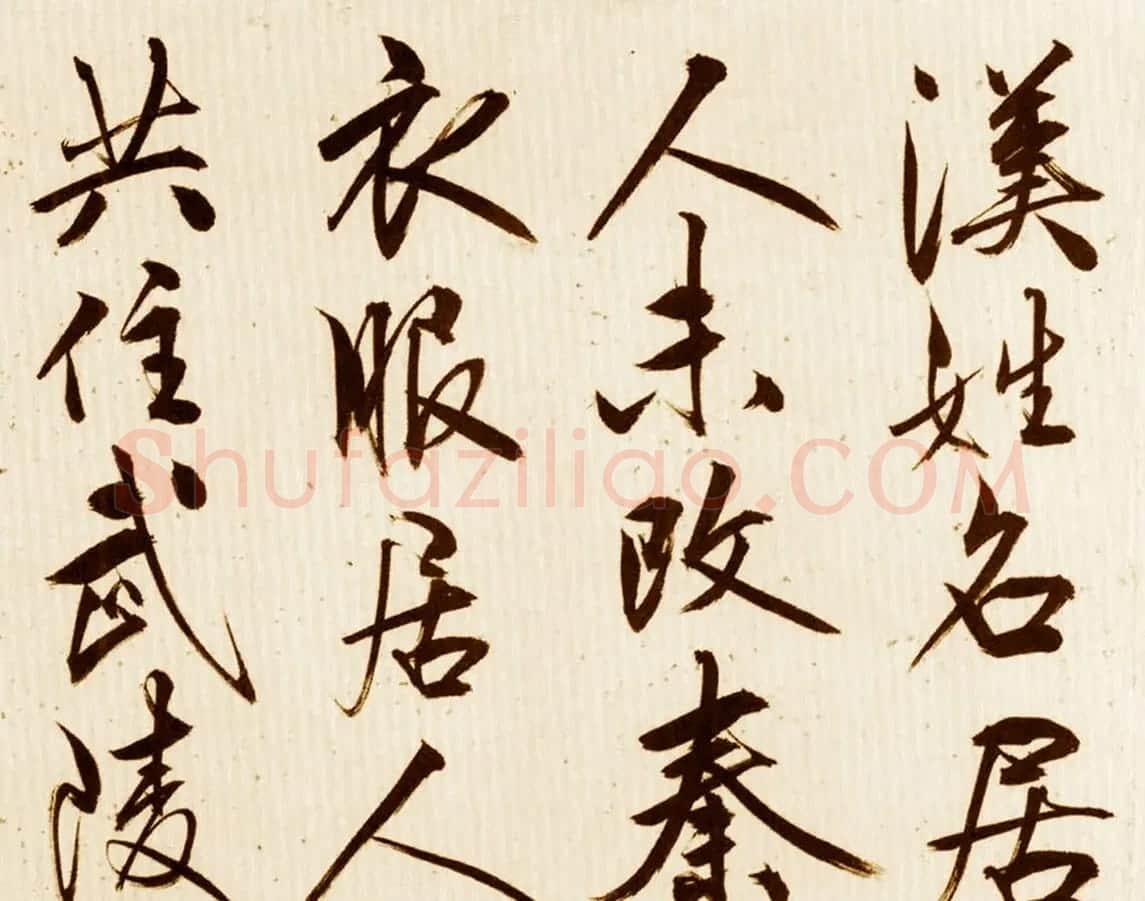 漢姓名居
人未改秦
衣服居人
共住武陵
Shufaziliao.COM